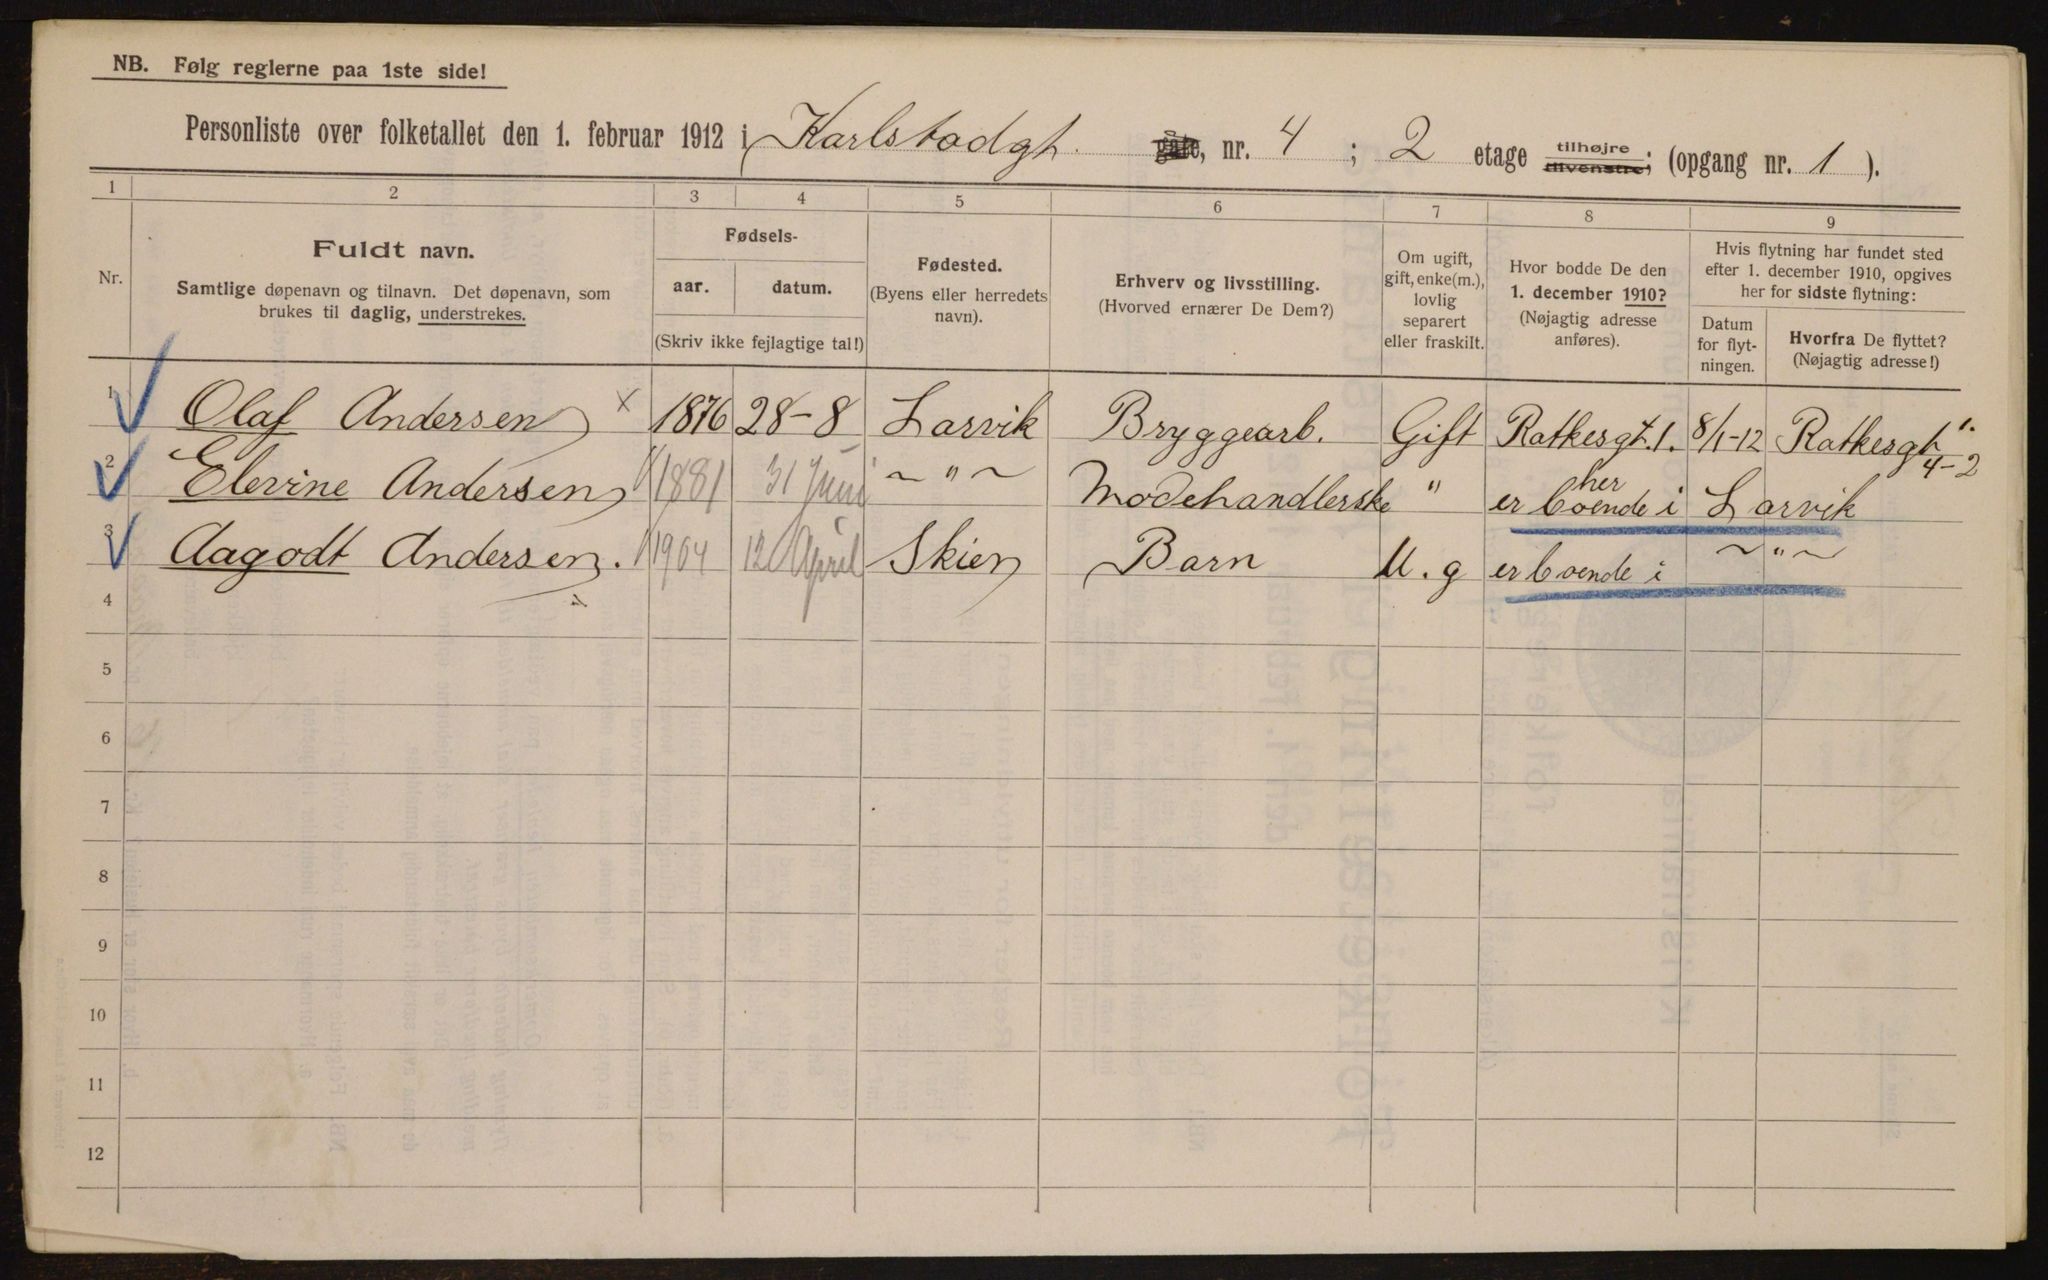 NB. Følg reglerne paa 1ste side!
Personliste over folketallet den 1. februar 1912 i Karlstadgt. gate, nr. 4 ; 2 etage tilhøjre tilvenstre; (opgang nr. 1 ).
1 2 3 4 5 6 7 8 9
Nr.
Fuldt navn.
Samtlige døpenavn og tilnavn. Det døpenavn, som
brukes til daglig, understrekes.
Fødsels-
aar. datum.
(Skriv ikke fejlagtige tal!)
Fødested.
(Byens eller herredets
navn).
Erhverv og livsstilling.
(Hvorved ernærer De Dem?)
Om ugift,
gift, enke(m.),
lovlig
separert
eller fraskilt.
Hvor bodde De den
1. december 1910?
(Nøjagtig adresse
anføres).
Hvis flytning har fundet sted
efter 1. december 1910, opgives
her for sidste flytning:
Datum
for flyt-
ningen.
Hvorfra De flyttet?
(Nøjagtig adresse!)
1 Olaf Andersen x 1876 28-8 Larvik Bryggearb. Gift Ratkesgt. 1. 8/1-12 Ratkesgt 1. 4-2
2 Elevine Andersen 1881 31 Juni ~ " ~ Modehandlerske " er her boende i Larvik
3 Aagodt Andersen. 1904 12 April Skien Barn U. g er boende i ~ " ~
4
5
6
7
8
9
10
11
12